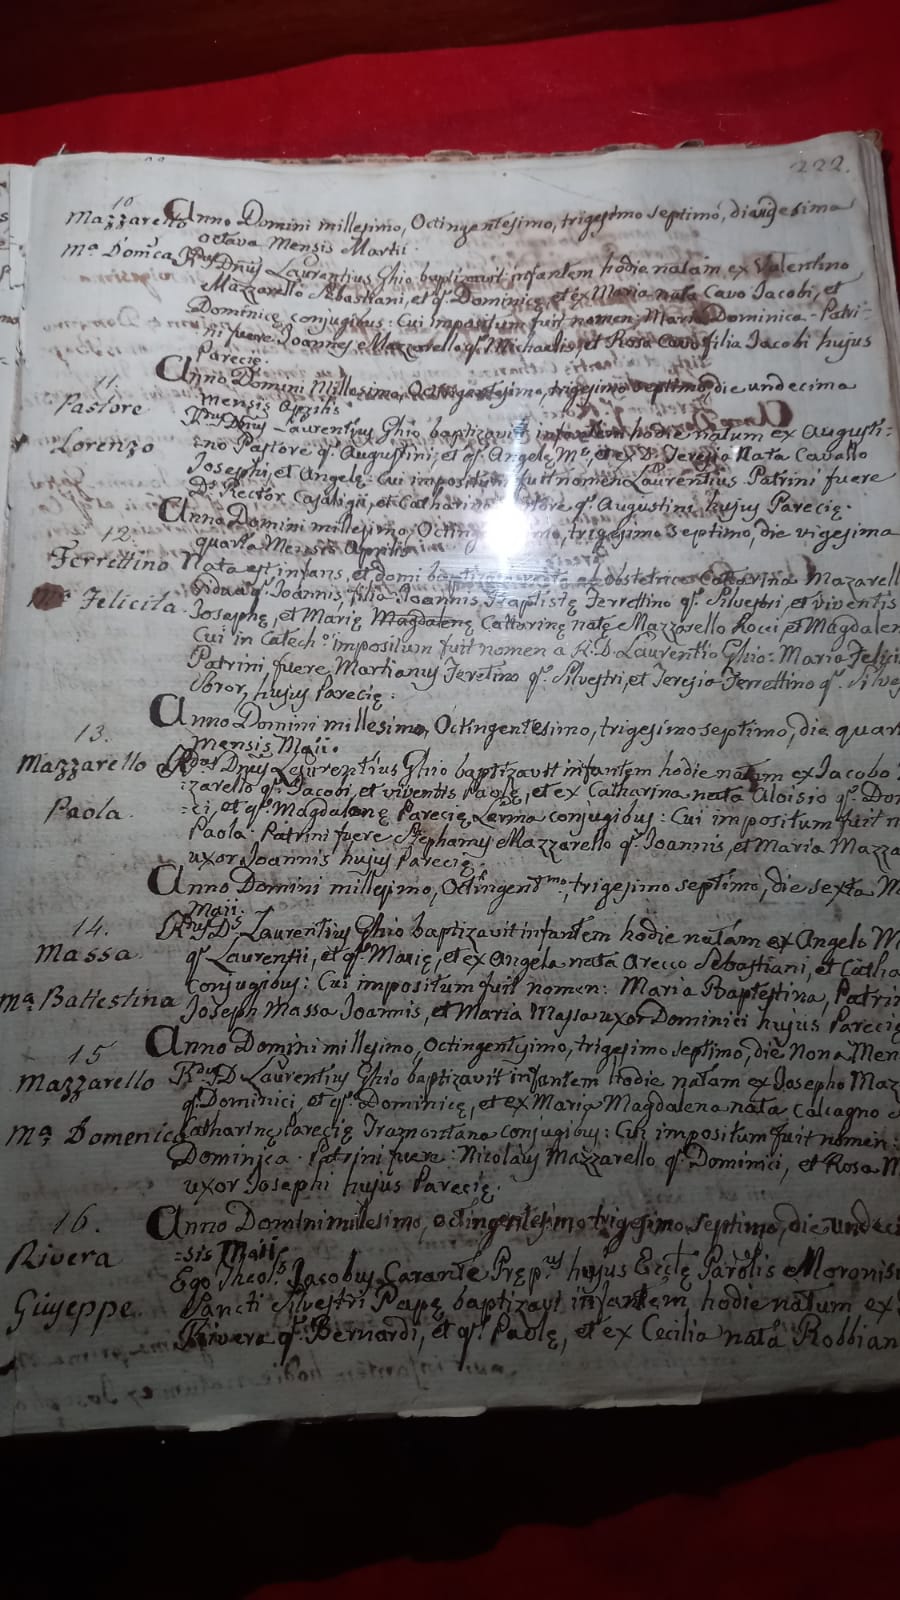 222.
10
Mazzarello Anno Domini millesimo, Octingentesimo, trigesimo septimo, die vigesima
octava Mensis Martii.
Mª Domca Rdus Dnus Laurentius Ghio baptizavit infantem hodie natam ex Valentino
Mazzarello Sebastiani, et q. Dominicę, et ex Maria nata Cavo Jacobi, et
Dominicę conjugibus: Cui impositum fuit nomen; Maria Dominica. Patri-
ni fuere Joannes Mazzarello q. Michaelis, et Rosa Cavo filia Jacobi hujus
Parecię.
11. Anno Domini Millesimo, Octingentesimo, trigesimo septimo, die undecima
Pastore Mensis Aprilis
Lorenzo Rdus Dnus Laurentius Ghio baptizavit infantem hodie natum ex Augusti-
no Pastore q. Augustini, et q. Angelę Mª, et ex D. Teresia Nata Cavallo
Josephi, et Angelę. Cui impositum fuit nomen Laurentius Patrini fuere
Ds Rector, et Catharina Pastore q. Augustini hujus Parecię.
12. Anno Domini millesimo, trigesimo septimo, die vigesima
quarta Mensis Aprilis
Ferrettino Nata est infans, et domi obstetrice Catharina Mazarell
Mª Felicita. q. Joannis, filia Joannis Baptistę Ferrettino q. Silvestri, et viventis
Josephę, et Marię Magdalenę Cattarinę natę Mazzarello Rocci et Magdalen
Cui in Catech.º impositum fuit nomen a R. D. Laurentio Ghio: Maria Felici
Patrini fuere Martianus Feretino q. Silvestri, et Teresia Ferrettino q. Silves
Soror, hujus Parecię.
13. Anno Domini millesimo, Octingentesimo, trigesimo septimo, die quar
Mensis Maii.
Mazzarello Rdus Dnus Laurentius Ghio baptizavit infantem hodie natam ex Jacobo
Paola. izarello q. Jacobi, et viventis Paolę, et ex Catharina nata Aloisio q. Do
ci, et q. Magdalenę Parecię Lerma conjugibus: Cui impositum fuit n
Paola. Patrini fuere Stephanus Mazzarello q. Joannis, et Maria Mazza
uxor Joannis hujus Parecię.
Anno Domini millesimo, Octingentmo, trigesimo septimo, die sexta M
Maii.
14. Rdus Ds. Laurentius Ghio baptizavit infantem hodie natam ex Angelo M
Massa q. Laurentii, et q. Marię, et ex Angela nata Arecco Sebastiani, et Catha
Mª Battestina conjugibus: Cui impositum fuit nomen: Maria Baptestina, Patrin
Joseph Massa Joannis, et Maria Massa uxor Dominici hujus Parecię
15 Anno Domini millesimo, Octingentesimo, trigesimo septimo, die Nona Men
Mazzarello Rdus D Laurentius Ghio baptizavit infantem hodie natam ex Josepho Maz
q. Dominici, et q. Dominicę, et ex Maria Magdalena nata Calcagno
Mª Domenica Catharinę Parecię Tramontana conjugibus: Cui impositum fuit nomen:
Dominica. Patrini fuere: Nicolaus Mazzarello q. Dominici, et Rosa M
uxor Josephi hujus Parecię.
16. Anno Domini millesimo, octingentesimo trigesimo septimo, die undeci
=sis Maii.
Rivera Ego Theols. Jacobus Carante Pręp.us hujus Ecclę Parolis Moronis
Giuseppe. Sancti Silvestri Papę baptizavi infantem, hodie natum ex
Rivera q. Bernardi, et q. Paolę, et ex Cecilia nata Robbian